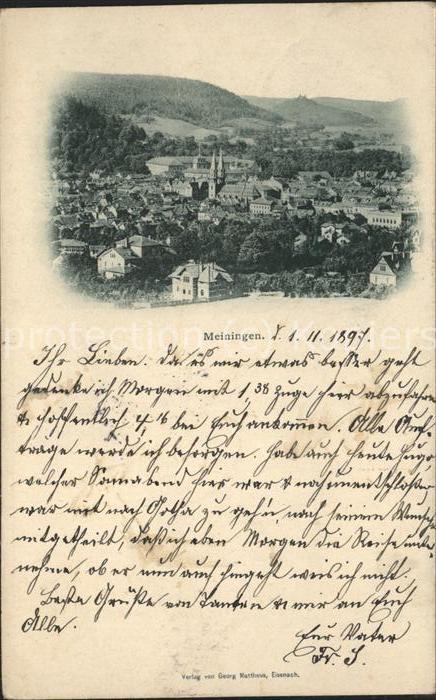 Meiningen. d. 1. 11. 1897.
Ihr Lieben. Da es mir etwas besser geht
gedenke ich Morgen mit 1,38 Zuge hier abzufahren
& hoffentlich 4 16 bei Euch ankommen. Alle Auf-
träge werde ich besorgen. Habe auch heute Hugo
welcher Sonnabend hier war & noch unentschlossen
war mit nach Gotha zu geh'n, nach seinem Wunsch
mitgetheilt, daß ich eben Morgen die Reise unter-
nehme, ob er nun auch hingeht weis ich nicht.
Beste Grüße von Tanten & mir an Euch
Alle.
Eur Vater
Fr. S.
Verlag von Georg Matthus, Eisenach.